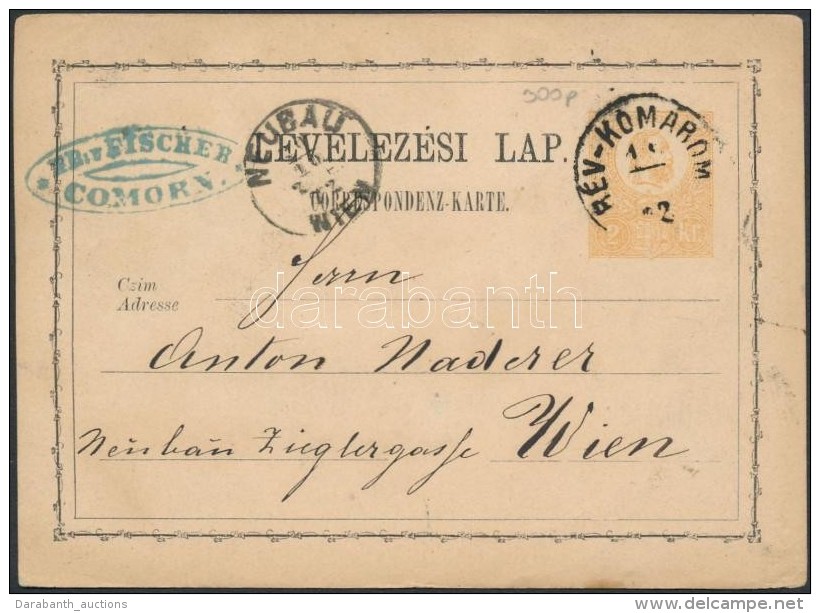 300p
FISCHER
COMORN.
NEUBAU
WIEN
LEVELEZÉSI LAP.
CORRESPONDENZ-KARTE.
RÉV-KOMÁROM
2 Kr
Czim
Adresse
Herrn
darabanth
Anton Naderer
Neubau Zieglergasse Wien
Darabanth_auctions
www.delcampe.net